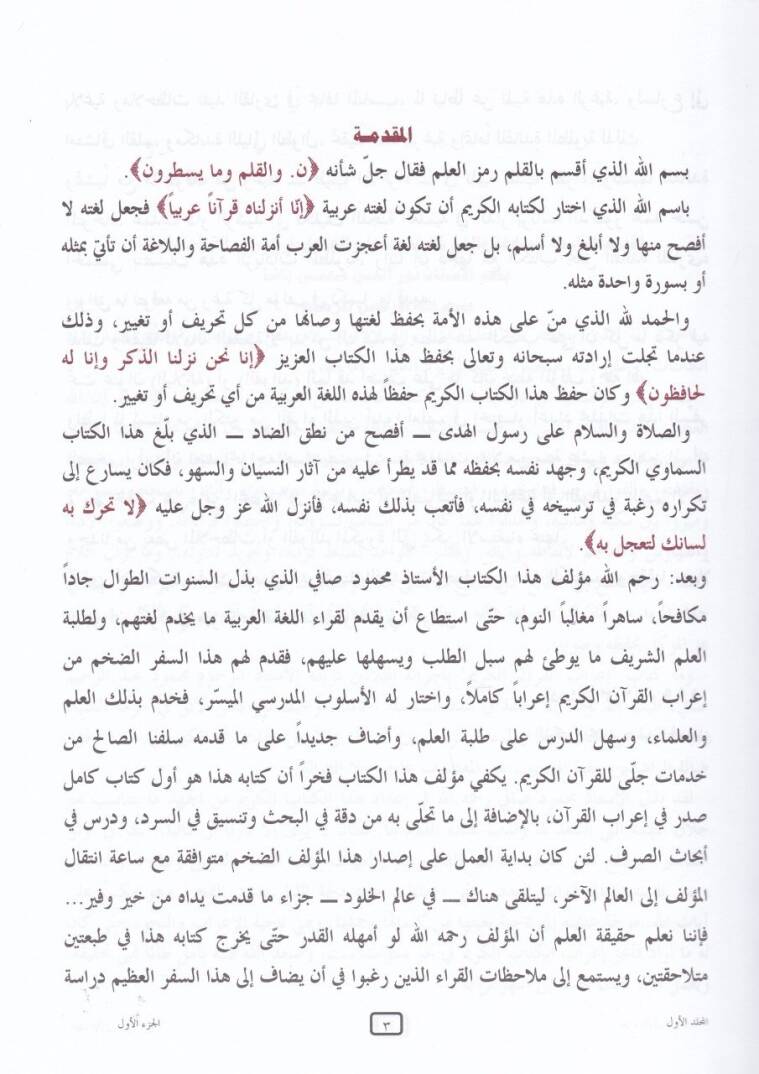 المقدمة
بسم الله الذي أقسم بالقلم رمز العلم فقال جلّ شأنه ﴿ن. والقلم وما يسطرون﴾.
باسم الله الذي اختار لكتابه الكريم أن تكون لغته عربية ﴿إنّا أنزلناه قرآناً عربياً﴾ فجعل لغته لا
أفصح منها ولا أبلغ ولا أسلم، بل جعل لغته لغة أعجزت العرب أمة الفصاحة والبلاغة أن تأتيَ بمثله
أو بسورة واحدة مثله.
والحمد لله الذي منّ على هذه الأمة بحفظ لغتها وصانها من كل تحريف أو تغيير، وذلك
عندما تجلت إرادته سبحانه وتعالى بحفظ هذا الكتاب العزيز ﴿إنا نحن نزلنا الذكر وإنا له
لحافظون﴾ وكان حفظ هذا الكتاب الكريم حفظاً لهذه اللغة العربية من أي تحريف أو تغيير.
والصلاة والسلام على رسول الهدى ــ أفصح من نطق الضاد ــ الذي بلّغ هذا الكتاب
السماوي الكريم، وجهد نفسه بحفظه مما قد يطرأ عليه من آثار النسيان والسهو، فكان يسارع إلى
تكراره رغبة في ترسيخه في نفسه، فأتعب بذلك نفسه، فأنزل الله عز وجل عليه ﴿لا تحرك به
لسانك لتعجل به﴾.
وبعد: رحم الله مؤلف هذا الكتاب الأستاذ محمود صافي الذي بذل السنوات الطوال جاداً
مكافحاً، ساهراً مغالباً النوم، حتّى استطاع أن يقدم لقراء اللغة العربية ما يخدم لغتهم، ولطلبة
العلم الشريف ما يوطئ لهم سبل الطلب ويسهلها عليهم، فقدم لهم هذا السفر الضخم من
إعراب القرآن الكريم إعراباً كاملاً، واختار له الأسلوب المدرسي الميسّر، فخدم بذلك العلم
والعلماء، وسهل الدرس على طلبة العلم، وأضاف جديداً على ما قدمه سلفنا الصالح من
خدمات جلّى للقرآن الكريم. يكفي مؤلف هذا الكتاب فخراً أن كتابه هذا هو أول كتاب كامل
صدر في إعراب القرآن، بالإضافة إلى ما تحلّى به من دقة في البحث وتنسيق في السرد، ودرس في
أبحاث الصرف. لئن كان بداية العمل على إصدار هذا المؤلف الضخم متوافقة مع ساعة انتقال
المؤلف إلى العالم الآخر، ليتلقى هناك ــ في عالم الخلود ــ جزاء ما قدمت يداه من خير وفير...
فإننا نعلم حقيقة العلم أن المؤلف رحمه الله لو أمهله القدر حتّى يخرج كتابه هذا في طبعتين
متلاحقتين، ويستمع إلى ملاحظات القراء الذين رغبوا في أن يضاف إلى هذا السفر العظيم دراسة
المجلد الأول
٣
الجزء الأول